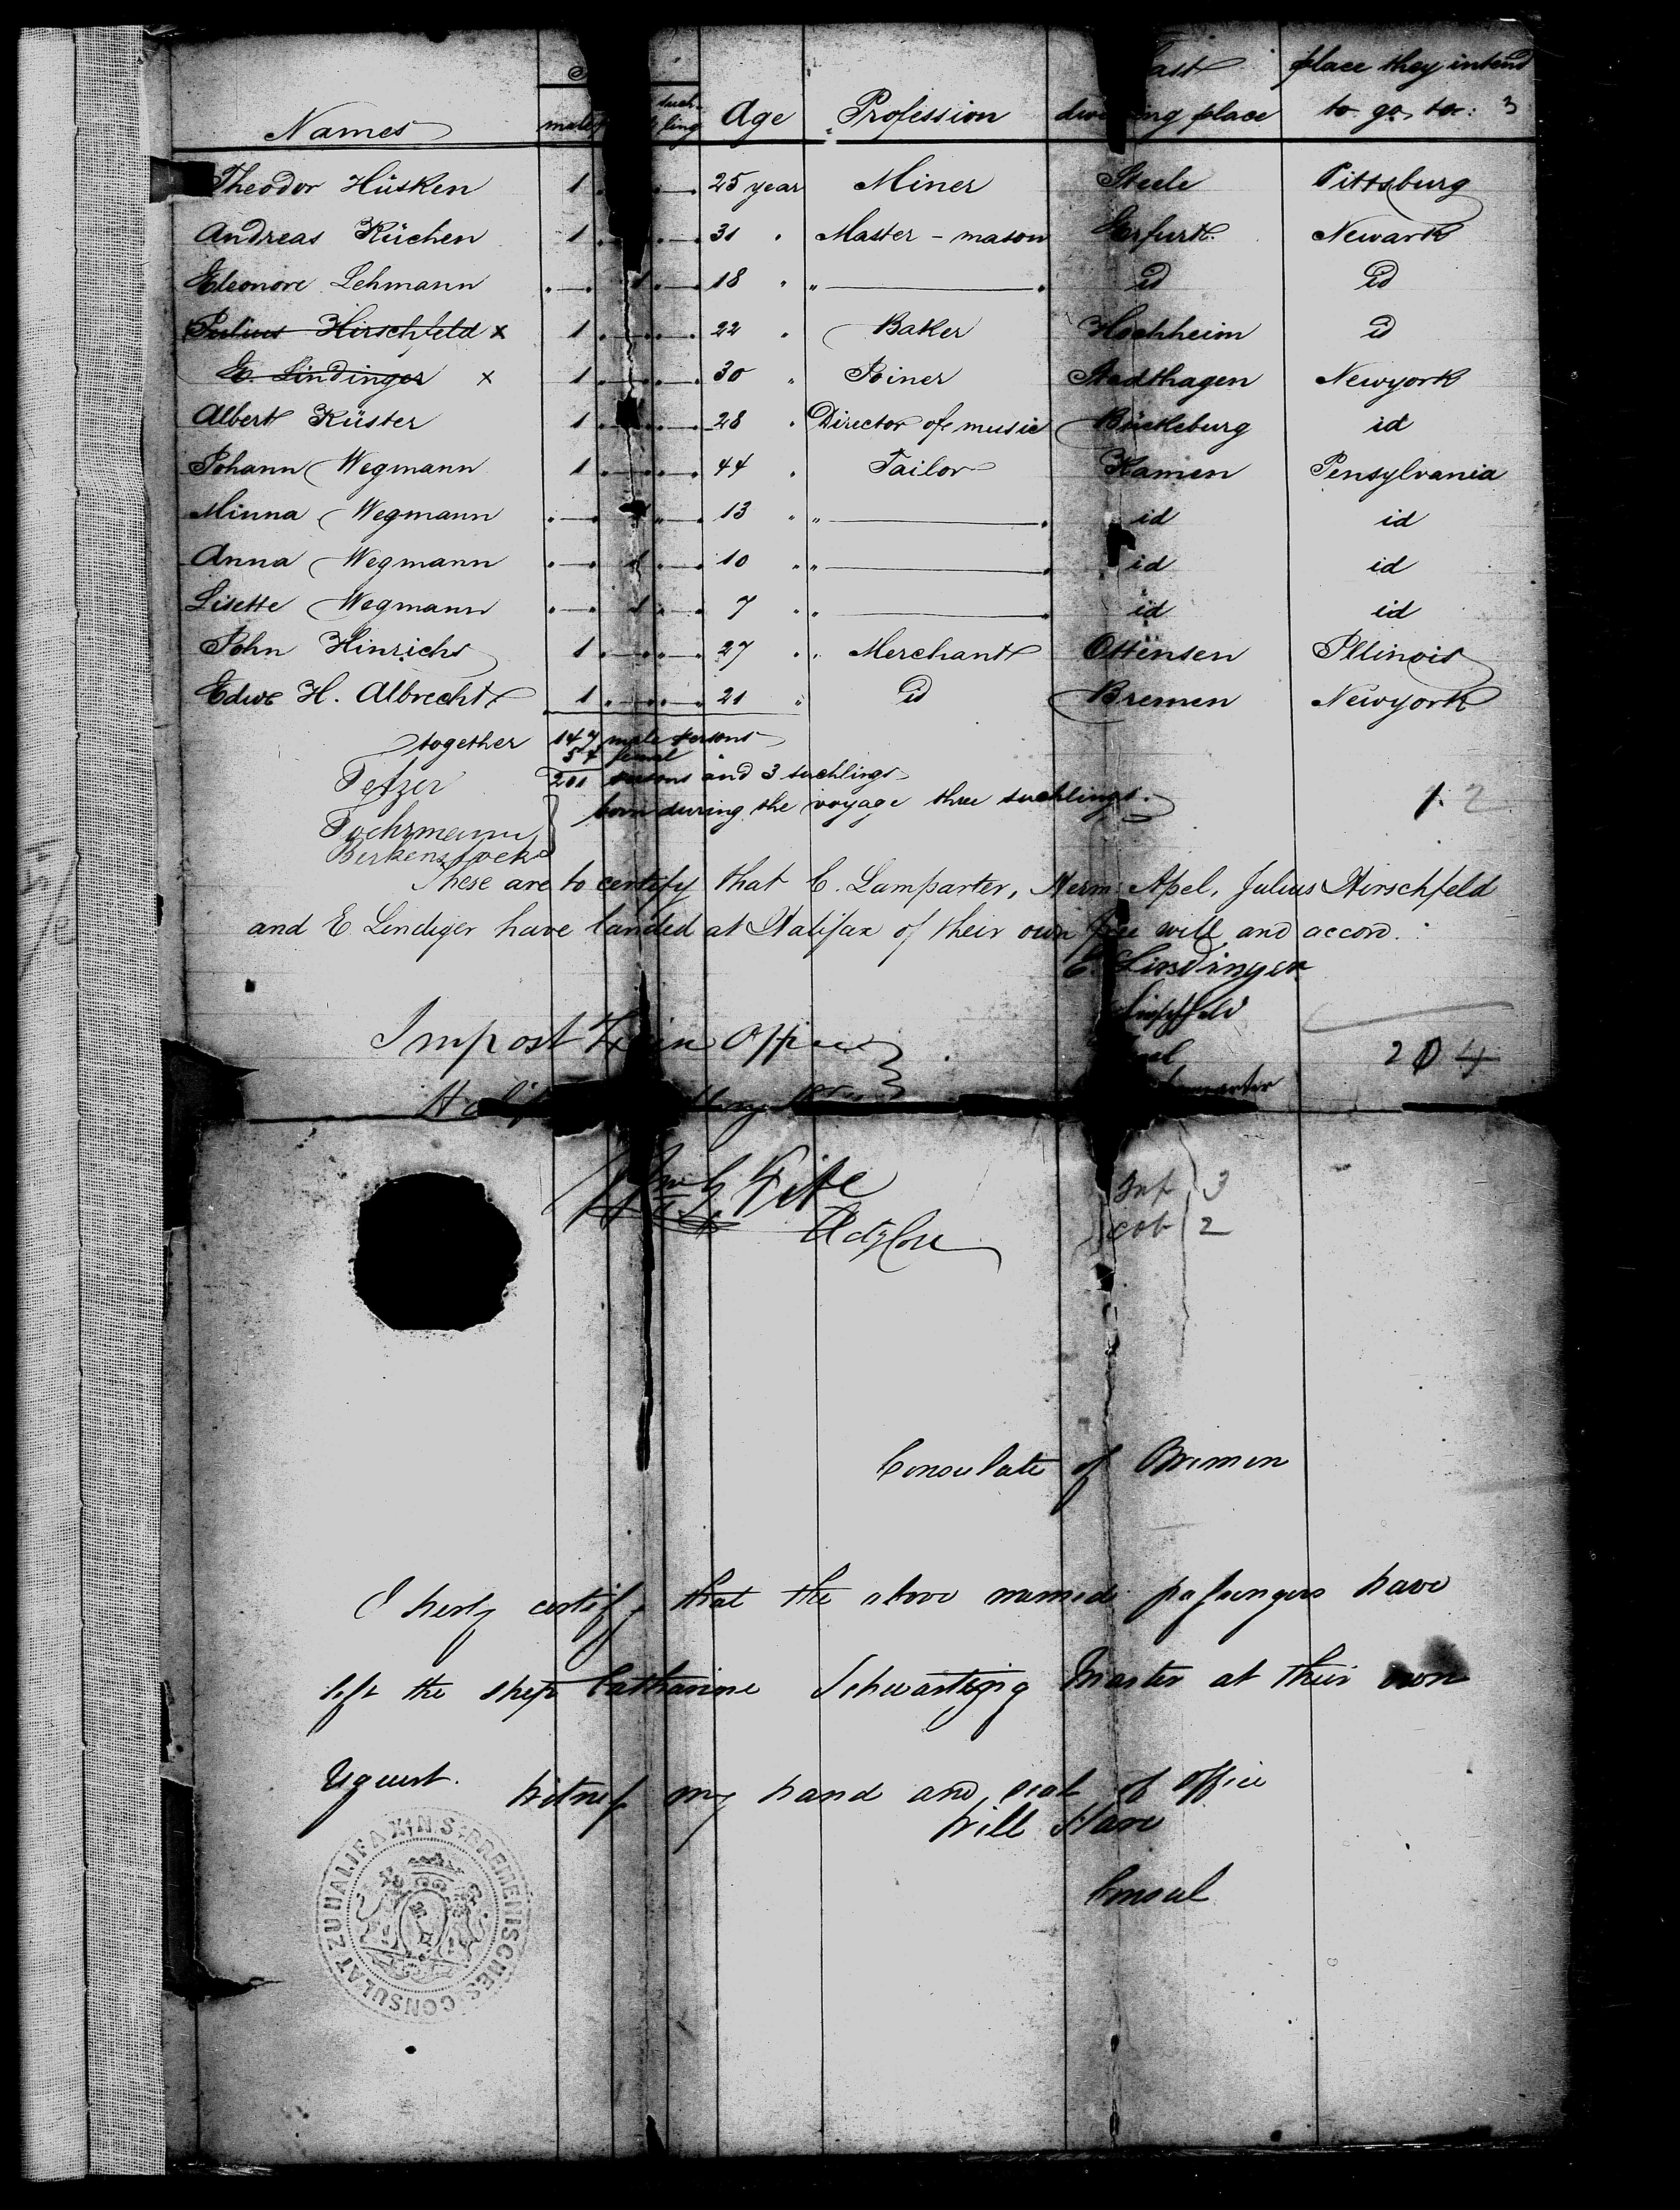 Names male suckling Age Profession last dwelling place place they intend to go to: 3
Theodor Hüsken 1 25 year Miner Steele Pittsburg
Andreas Küchen 1 31 " Master-mason Erfurt Newark
Eleonore Lehmann 1 18 " " id id
Julius Hirschfeld x 1 22 " Baker Hochheim id
E. Lindinger x 1 30 " Joiner Stadthagen Newyork
Albert Küster 1 28 " Director of music Bückeburg id
Johann Wegmann 1 44 " Tailor Kamen Pensylvania
Minna Wegmann 13 " " id id
Anna Wegmann 1 10 " " id id
Lisette Wegmann 1 7 " " id id
John Hinrichs 1 27 " Merchant Ottensen Illinois
Edwe H. Albrecht 1 21 " id Bremen Newyork
together 147 male persons
54 femal
Tetzer 201 persons and 3 suchlings
born during the voyage three suchlings. 12
Tochrmann
Berkenstock
These are to certify that C. Lamparter, Herm. Apel, Julius Hirschfeld
and E Lindiger have landed at Halifax of their own free will and accord.
E. Lindinger
Hirschfeld
Impost Office 204
Inf 3
cob 2
Consulate of Bremen
I herby certify that the above named passengers have
left the ship Catharine Master at their own
request. Witness my hand and seal of office
Will Stare
Consul
BREMENISCHES CONSULAT ZU HALIFAX N.S.